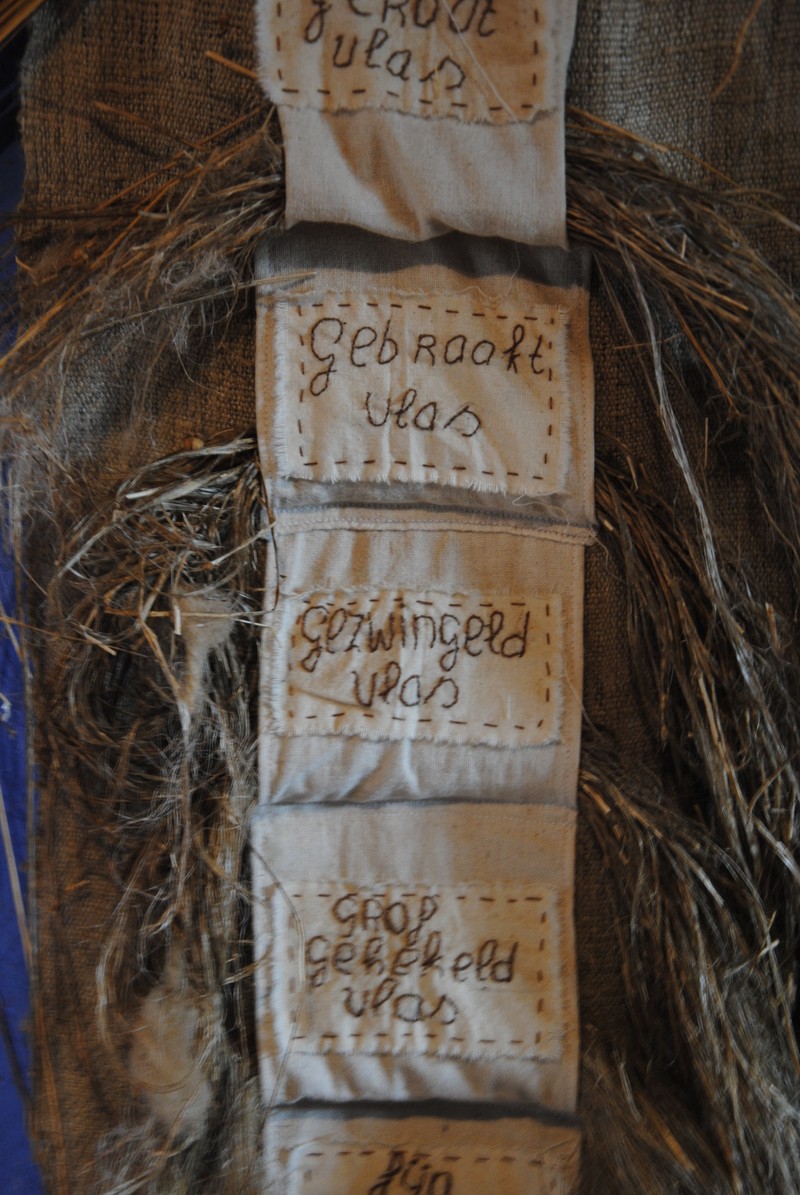 geroot
vlas
gebraakt
vlas
gezwingeld
vlas
grof
gehekeld
vlas
fijn